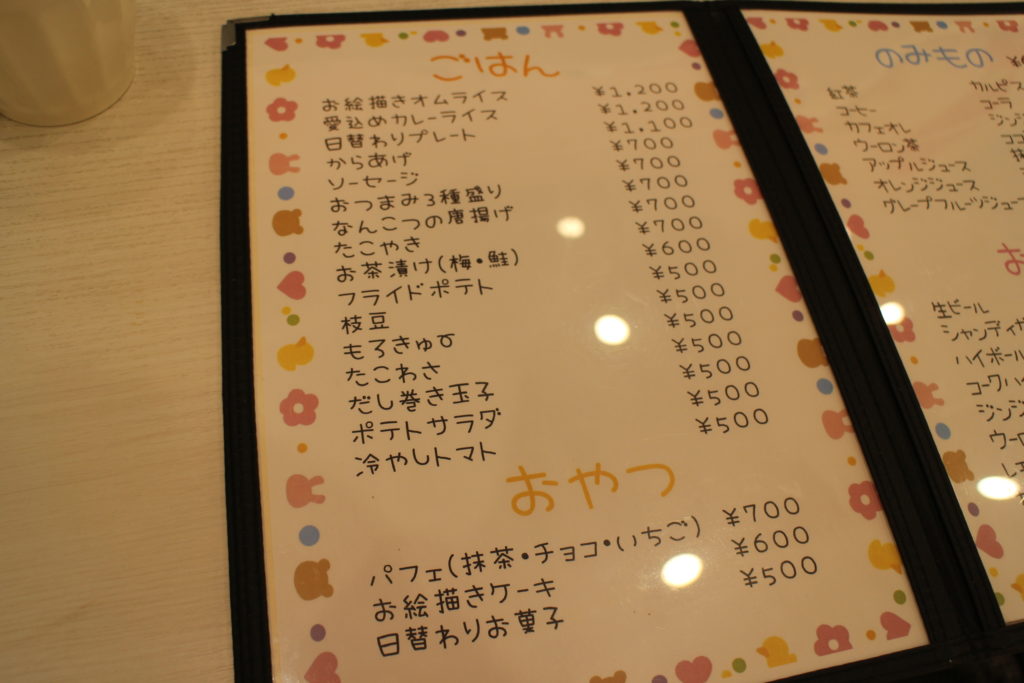 ごはん
お絵描きオムライス ¥1,200
愛込めカレーライス ¥1,200
日替わりプレート ¥1,100
からあげ ¥700
ソーセージ ¥700
おつまみ3種盛り ¥700
なんこつの唐揚げ ¥700
たこやき ¥700
お茶漬け(梅・鮭) ¥600
フライドポテト ¥500
枝豆 ¥500
もろきゅう ¥500
たこわさ ¥500
だし巻き玉子 ¥500
ポテトサラダ ¥500
冷やしトマト ¥500
おやつ
パフェ(抹茶・チョコ・いちご) ¥700
お絵描きケーキ ¥600
日替わりお菓子 ¥500
のみもの
紅茶
コーヒー
カフェオレ
ウーロン茶
アップルジュース
オレンジジュース
グレープフルーツジュー
カルピス
コーラ
ジン
ココ
お
生ビール
シャンディガ
ハイボール
コークハ
ジンジ
ウーロ
レモ